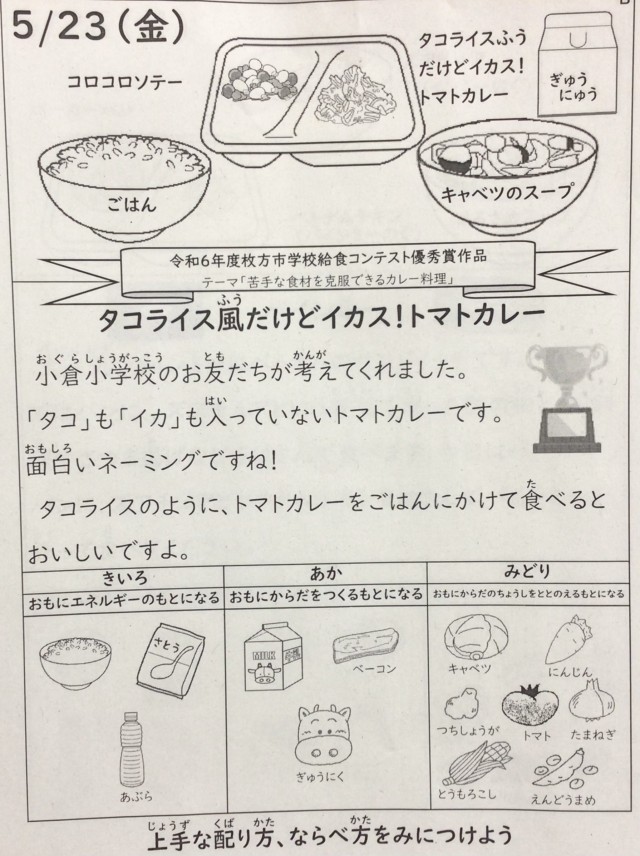 5/23(金)
コロコロソテー
タコライスふう
だけどイカス!
トマトカレー
ぎゅう
にゅう
ごはん
キャベツのスープ
令和6年度枚方市学校給食コンテスト優秀賞作品
テーマ「苦手な食材を克服できるカレー料理」
ふう
タコライス風だけどイカス!トマトカレー
おぐらしょうがっこう とも かんが
小倉小学校のお友だちが考えてくれました。
はい
「タコ」も「イカ」も入っていないトマトカレーです。
おもしろ
面白いネーミングですね!
た
タコライスのように、トマトカレーをごはんにかけて食べると
おいしいですよ。
きいろ
あか
みどり
おもにエネルギーのもとになる
おもにからだをつくるもとになる
おもにからだのちょうしをととのえるもとになる
さとう
MILK
ベーコン
キャベツ
にんじん
つちしょうが
トマト
たまねぎ
あぶら
ぎゅうにく
とうもろこし
えんどうまめ
じょうず くば かた かた
上手な配り方、ならべ方をみにつけよう